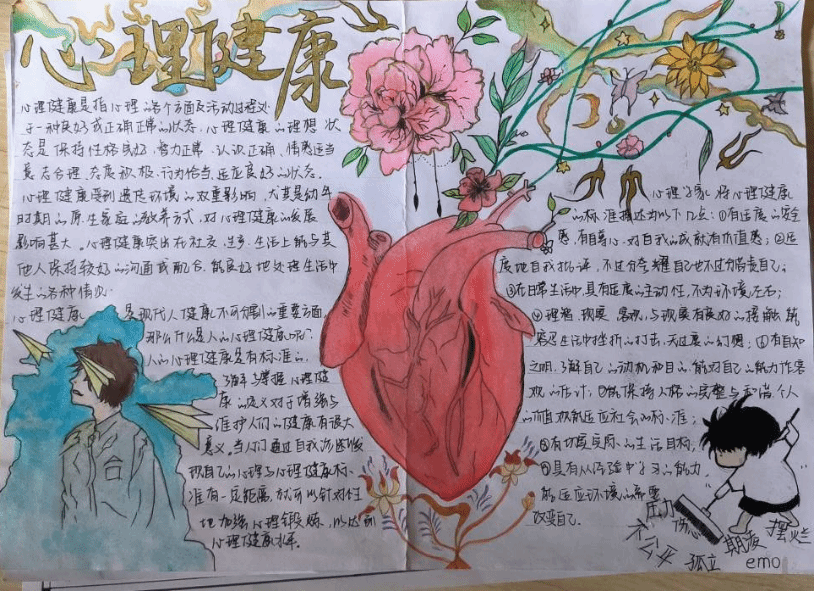 心理健康
心理健康是指心理的各个方面及活动过程处
于一种良好或正常的状态。心理健康的理想状
态是保持性格良好、智力正常、认识正确、情感适当
意志合理、态度积极、行为恰当、适应良好的状态。
心理健康受到遗传环境的双重影响，尤其是幼年
时期的原生家庭的教养方式，对心理健康的发展
影响甚大。心理健康突出在社交、生活上能与其
他人保持较好的沟通或配合，能良好地处理生活中
发生的各种情况。
心理健康是现代人健康不可分割的重要方面，
那么什么是人的心理健康呢?
人的心理健康是有标准的
了解与掌握心理健
康的定义对于增强与
维护人们的健康有很大
意义。当人们通过自我诊断发
现自己的心理与心理健康标
准有一定距离，就可以针对性
地加强心理锻炼，以达到
心理健康水平。
心理学家将心理健康
的标准描述为以下几点:①有适度的安全
感，有自尊心，对自我的成就有价值感；②适
度地自我批评，不过分夸耀自己也不过分苛责自己；
③在日常生活中，具有适度的主动性，不为环境左右；
④理智，现实，客观，与现实有良好的接触，能
容忍生活中挫折的打击，无过度的幻想；①有自知
之明，了解自己的动机和目的，能对自己的能力作客
观的估计；①能保持人格的完整与和谐，个人
的价值观能适应社会的标准；
⑤有切实实用的生活目标；
⑦具有从经验中学习的能力
能适应环境的需要
改变自己。
压力
伤心
不公平
孤立
期夜
emo
摆烂